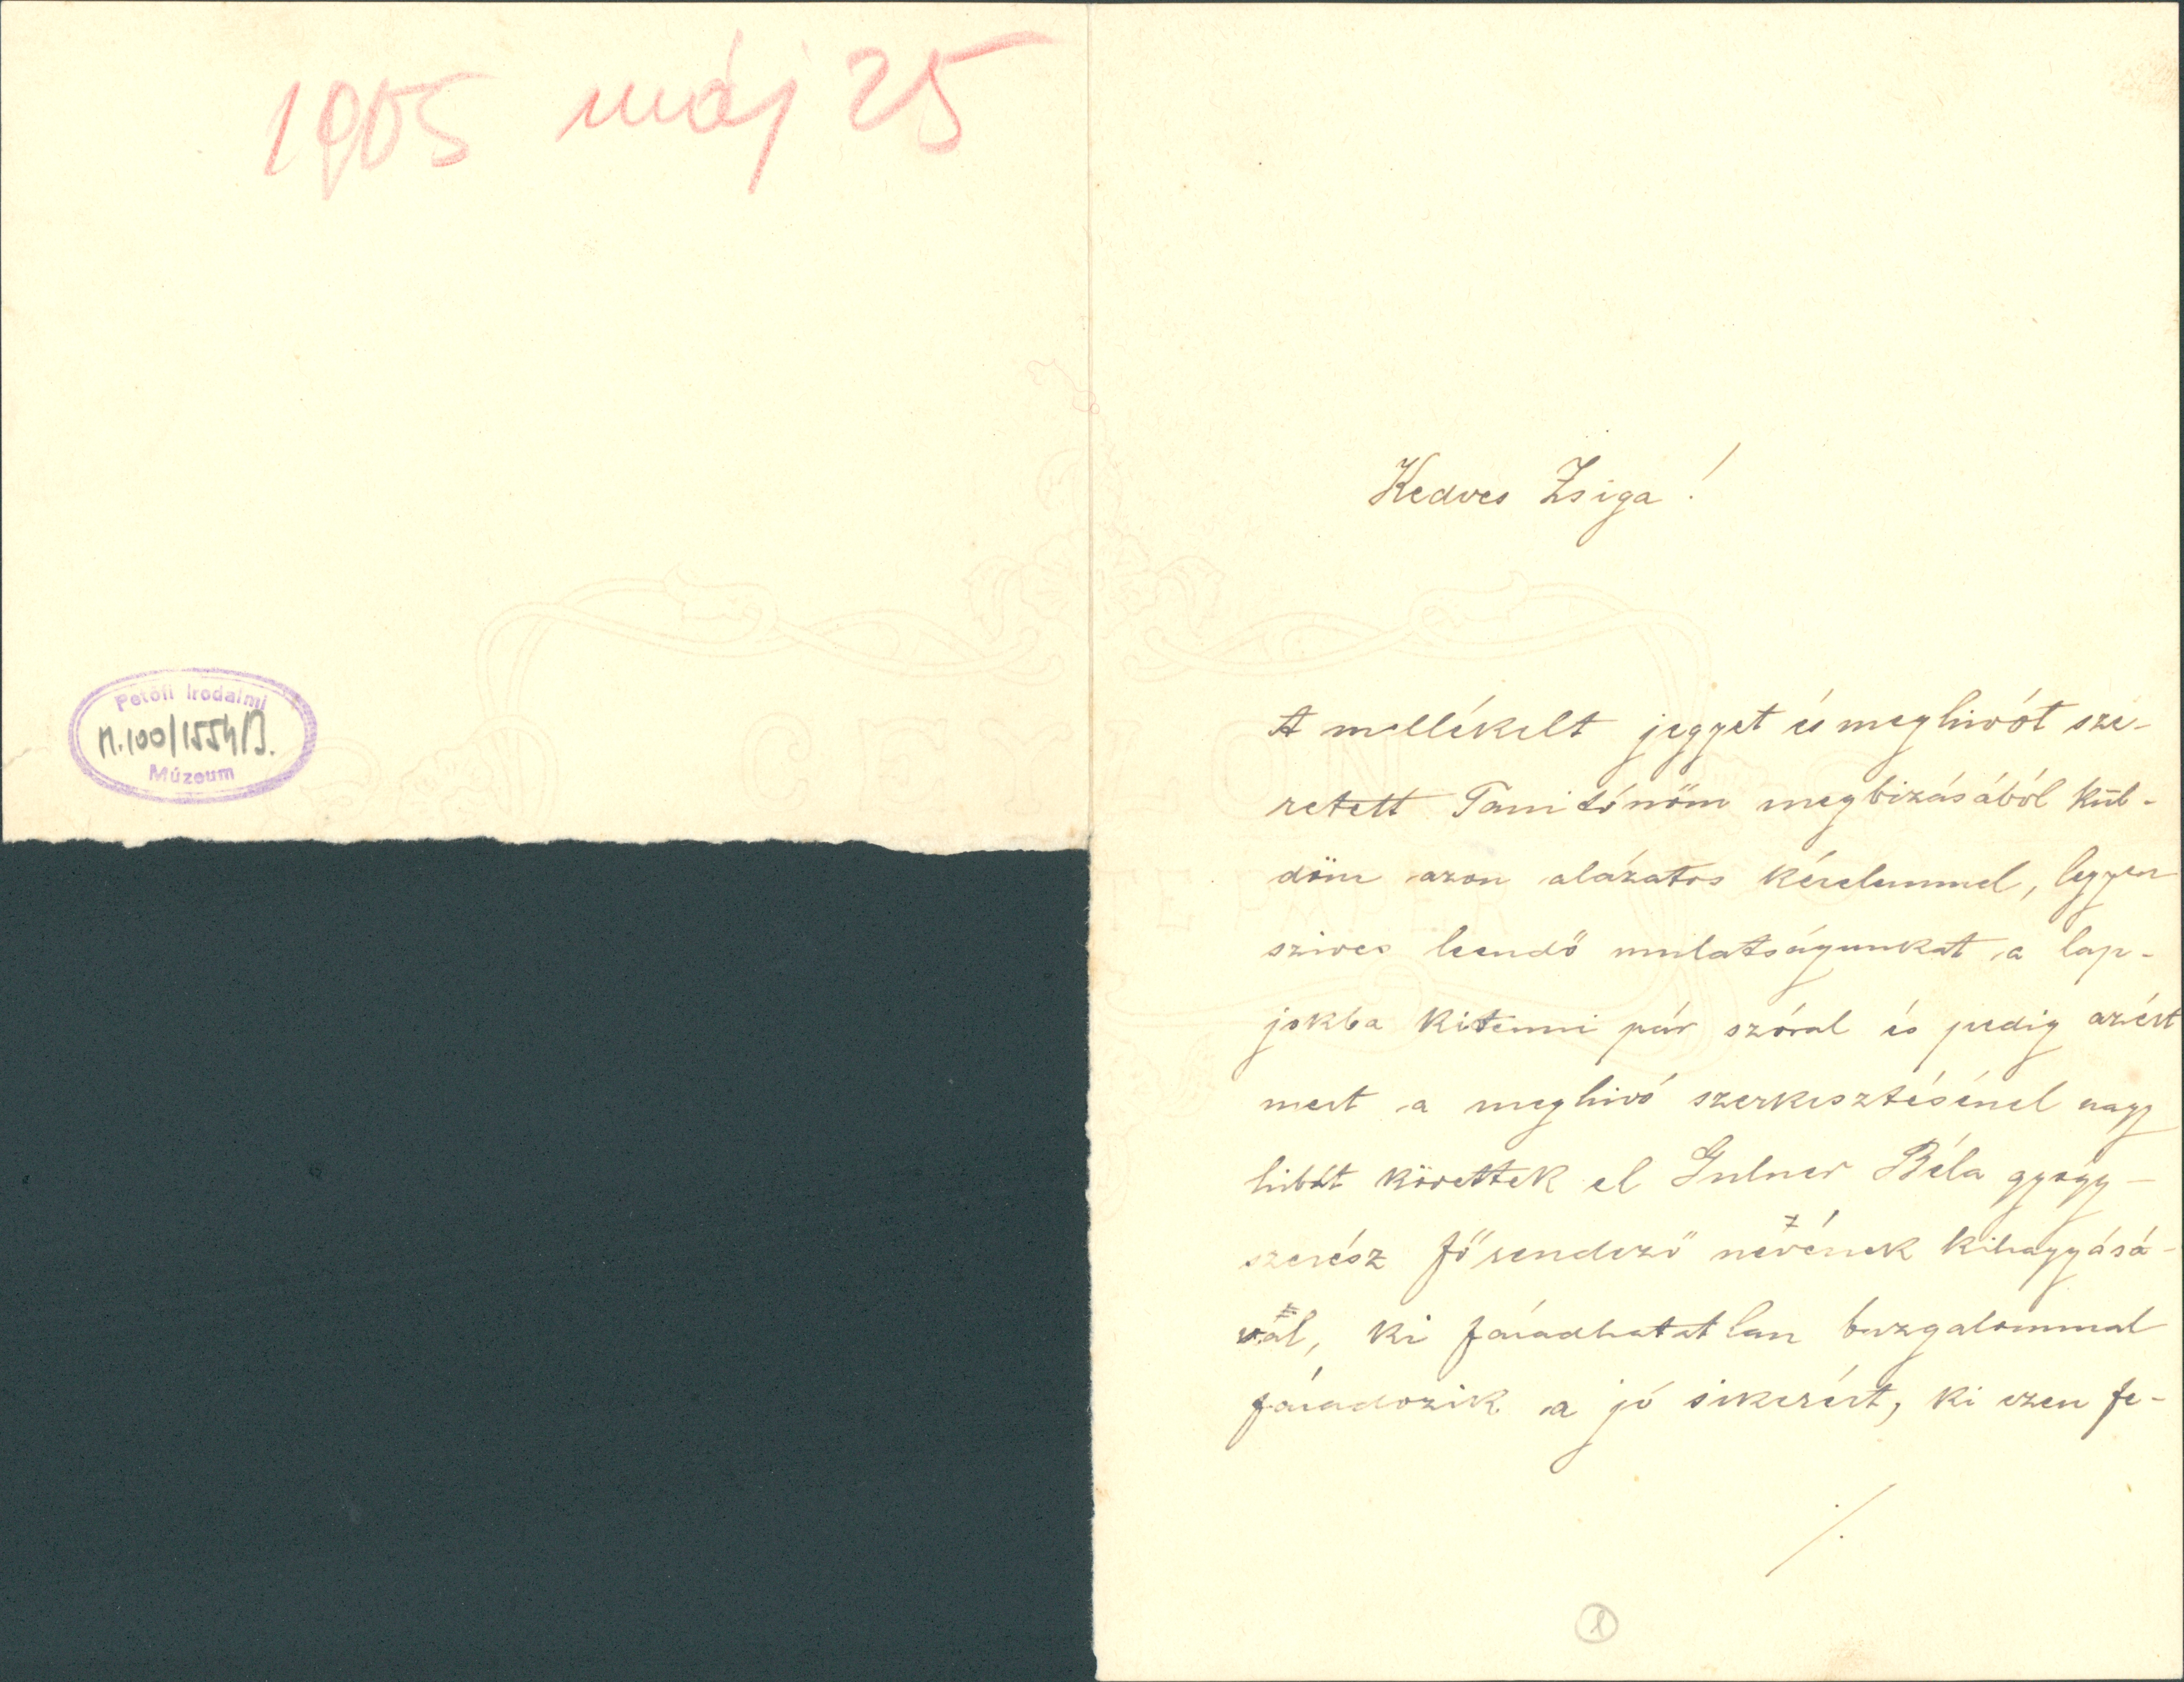 1905 máj 25
Petőfi Irodalmi
M.100/1554/3.
Múzeum
Kedves Zsiga!
A mellékelt jegyet és meghivót sze-
retett Tanitónőm megbizásából kül-
döm azon alázatos kérelemmel, legyen
szives leendő mulatságunkat a lap-
jokba kitenni pár szóval és pedig azért
mert a meghivó szerkesztésénél nagy
hibát követtek el Gulner Béla gyógy-
szerész főrendező nevének kihagyásá-
val, ki fáradhatatlan buzgalommal
fáradozik a jó sikerért, ki ezen fe-
./.
1
CEYLON